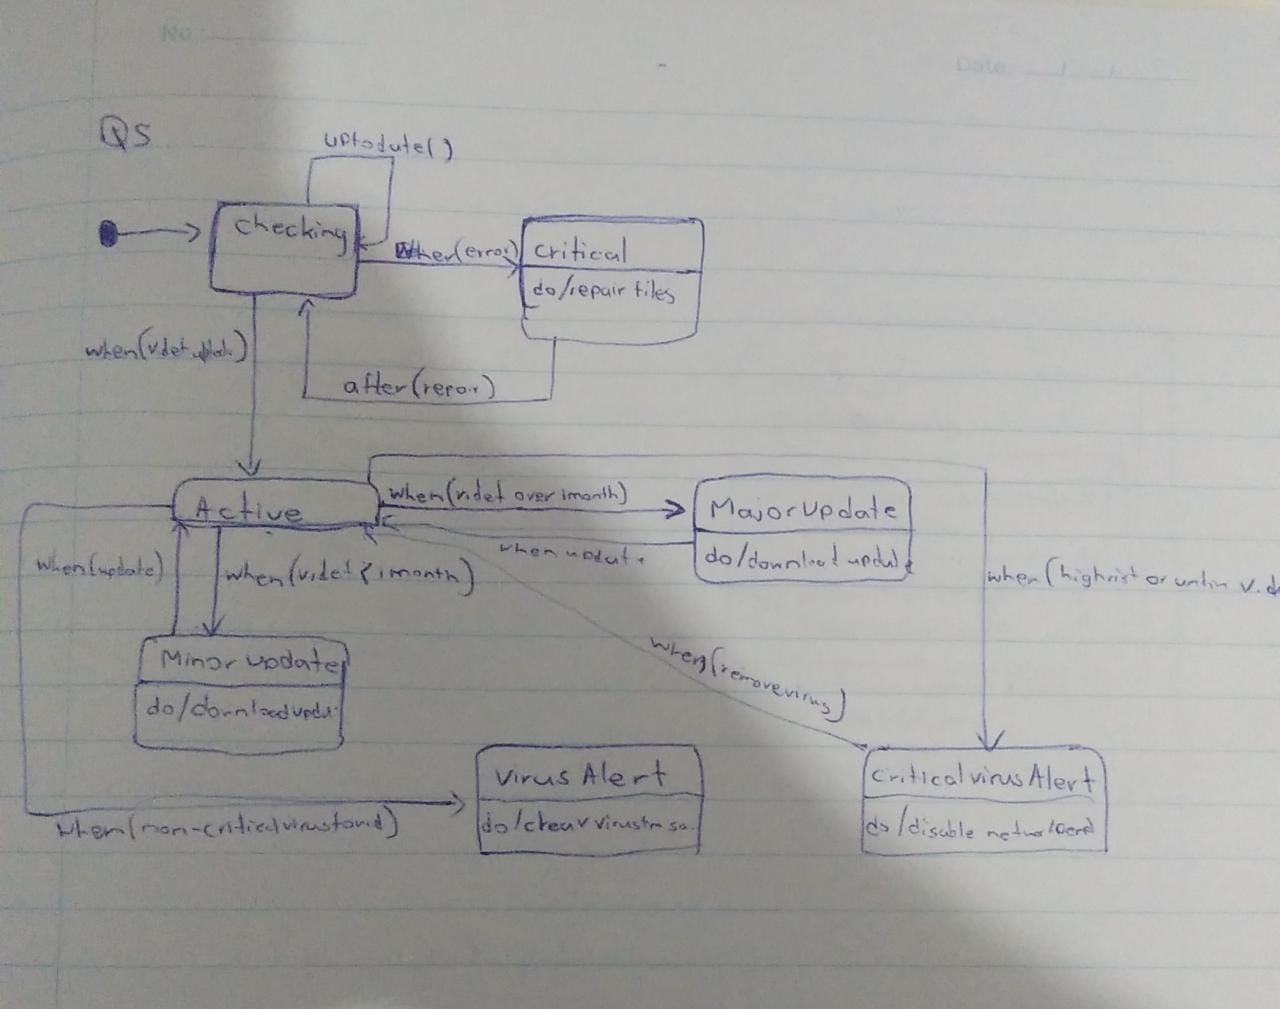 No
Date: / /
QS
uptodate()
checking
when(error)
critical
do/repair files
when(vdet
after(repair)
Active
when(vdet over 1month)
Major update
do/download update
when update
when(update)
when(vdet < 1month)
when(highrist or
Minor update
do/download
when(removevirus)
virus Alert
do/clear
critical virus Alert
do/disable
when(non-critical virus found)